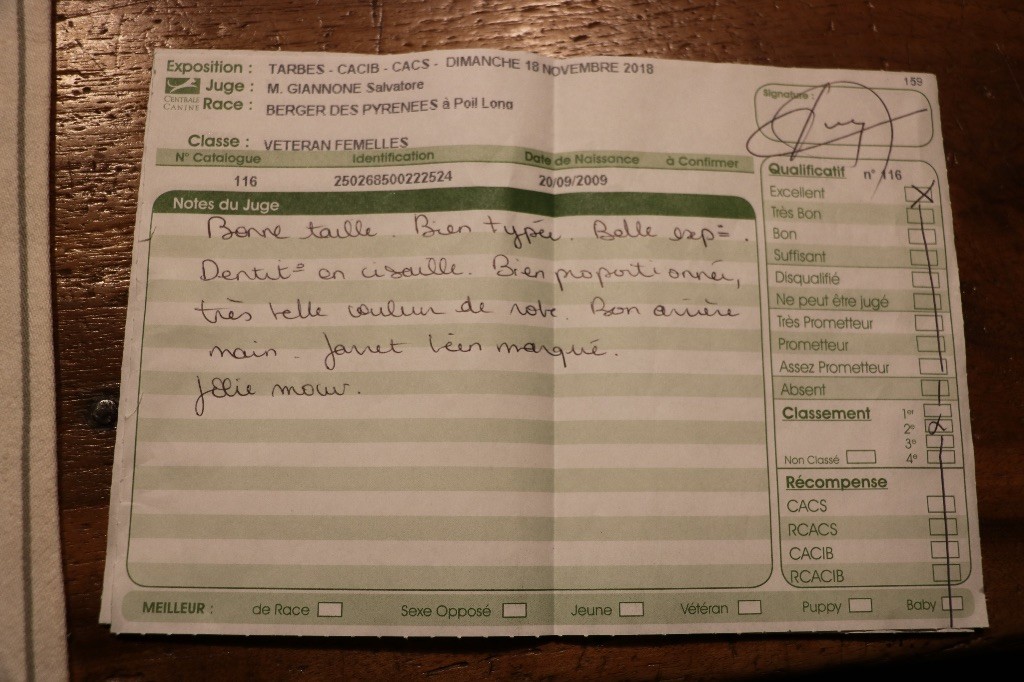 159
Exposition : TARBES - CACIB - CACS - DIMANCHE 18 NOVEMBRE 2018
Juge : M. GIANNONE Salvatore
CENTRALE CANINE
Race : BERGER DES PYRENEES à Poil Long
Signature :
Classe : VETERAN FEMELLES
N° Catalogue Identification Date de Naissance à Confirmer
116 250268500222524 20/09/2009
Notes du Juge
Bonne taille. Bien typée. Belle exp=.
Dentit° en cisaille. Bien proportionnée,
très belle couleur de robe. Bon arrière
main. Jarret bien marqué.
Jolie mouv.
Qualificatif n° 116
Excellent
Très Bon
Bon
Suffisant
Disqualifié
Ne peut être jugé
Très Prometteur
Prometteur
Assez Prometteur
Absent
Classement 1er
2e
3e
Non Classé 4e
Récompense
CACS
RCACS
CACIB
RCACIB
MEILLEUR : de Race Sexe Opposé Jeune Vétéran Puppy Baby